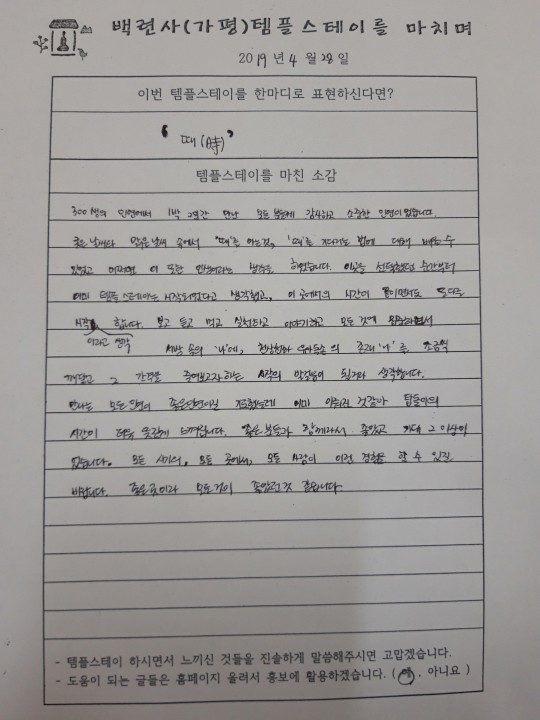 백련사(가평)템플스테이를 마치며
2019년 4월 28일
이번 템플스테이를 한마디로 표현하신다면?
'때(時)'
템플스테이를 마친 소감
300생의 인연에서 1박 2일간 만난 모든 분들께 감사하고 소중한 인연이었습니다.
궂은 날씨와 맑은 날씨 속에서 '때'를 아는것, '때'를 기다리는 법에 대해 배울 수
있었고 어쩌면 이 또한 인생이라는 생각을 하였습니다. 이곳을 선택했던 순간부터
이미 템플스테이는 시작되었다고 생각했고, 이 곳에서의 시간이 끝이면서도 또다른
시작 합니다. 보고 듣고 먹고 실천하고 이야기하고 모든 것에 집중하면서
이라고 생각
세상 속의 '나'에, 천상천하 유아독존의 존재 '나'를 조금씩
깨닫고 그 간격을 줄여보고자하는 시작의 발걸음이 된거라 생각합니다.
만나는 모든 인연이 좋은인연이길 이미 이뤄진 것같아 템플에서의
시간이 더욱 뜻깊게 느껴집니다. 좋은 분들과 함께라서 좋았고 그 이상이
없습니다. 모든 시기의, 모든 곳에서, 모든 사람이 이런 경험을 할 수 있길
바랍니다. 좋은곳이라 모든것이 좋았던것 같습니다.
- 템플스테이 하시면서 느끼신 것들을 진솔하게 말씀해주시면 고맙겠습니다.
- 도움이 되는 글들은 홈페이지 올려서 홍보에 활용하겠습니다. (예, 아니요)